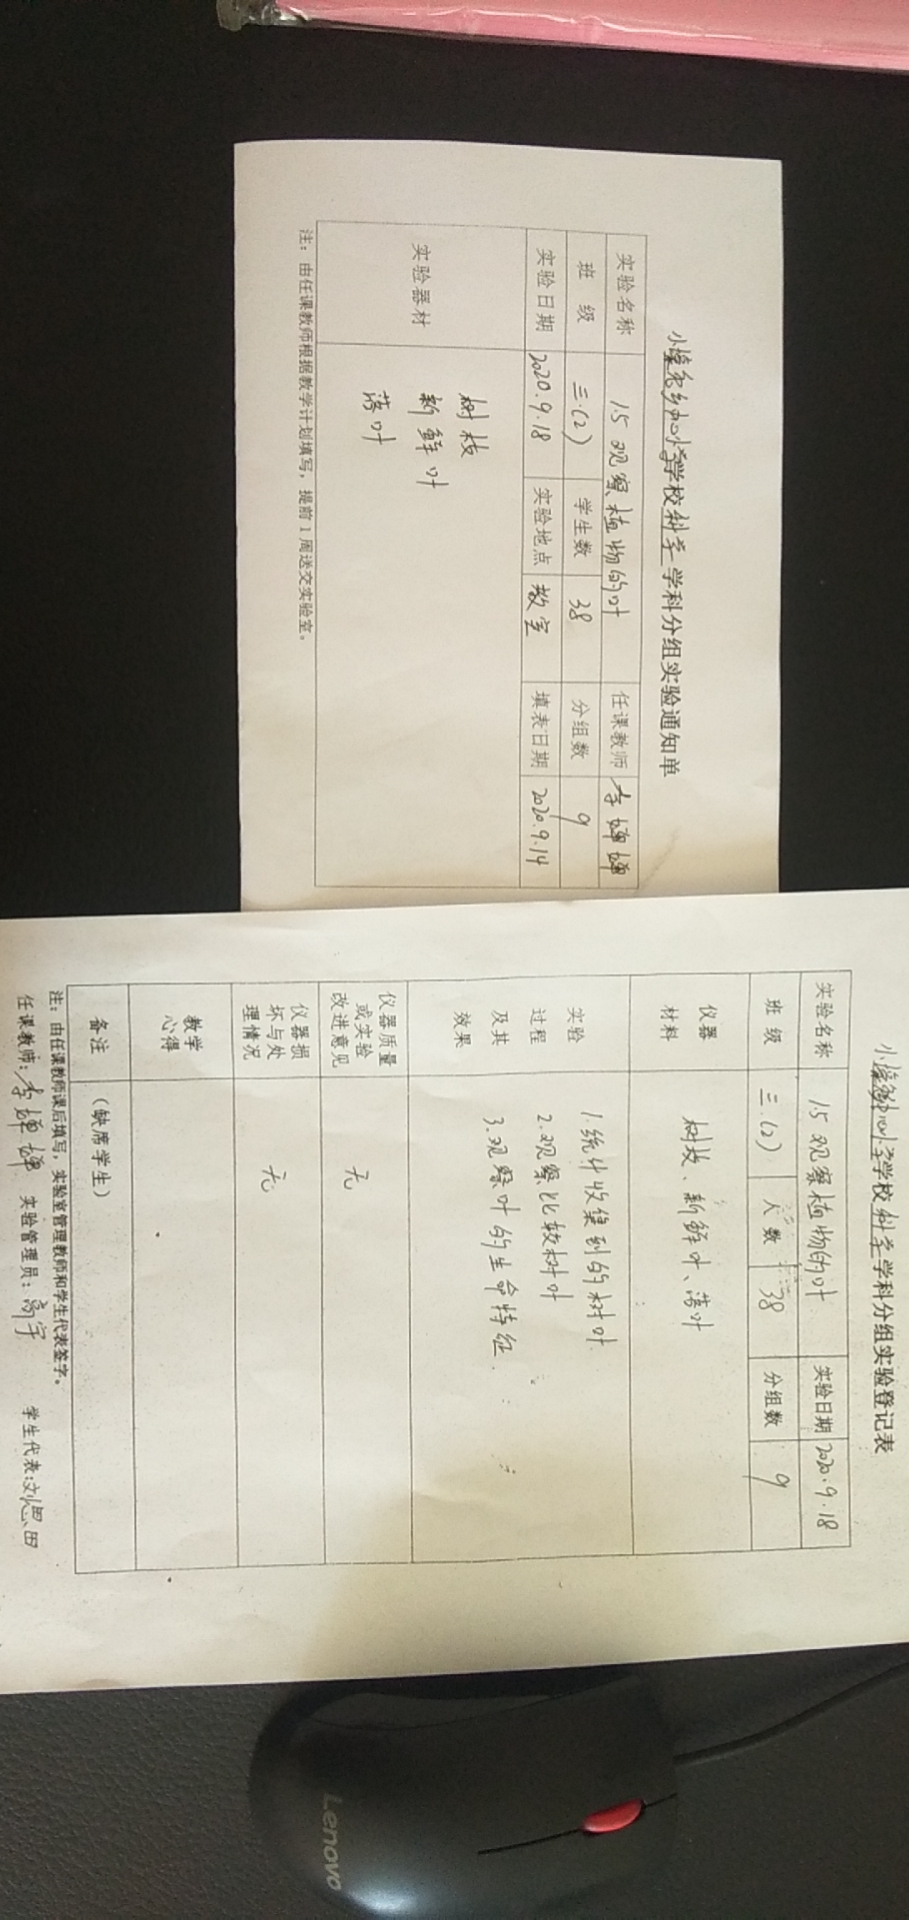 学校科学学科分组实验通知单
实验名称 1.5 观察植物的叶 任课教师 李婵婵
班 级 三.(2) 学生数 38 分组数 9
实验日期 2020.9.18 实验地点 教室 填表日期 2020.9.14
实验器材
树枝
新鲜叶
落叶
注：由任课教师根据教学计划填写，提前1周送交实验室。
学校科学学科分组实验登记表
实验名称 1.5 观察植物的叶 实验日期 2020.9.18
班 级 三.(2) 人 数 38 分组数 9
仪器
材料
树枝、新鲜叶、落叶
实验
过程
及其
效果
1.统计收集到的树叶
2.观察比较树叶
3.观察叶的生命特征.
仪器质量
或实验
改进意见
无
仪器损
坏与处
理情况
无
教学
心得
备注 （缺席学生）
注：由任课教师课后填写，实验室管理教师和学生代表签字。
任课教师：李婵婵 实验管理员：高宇 学生代表：刘思田
Lenovo